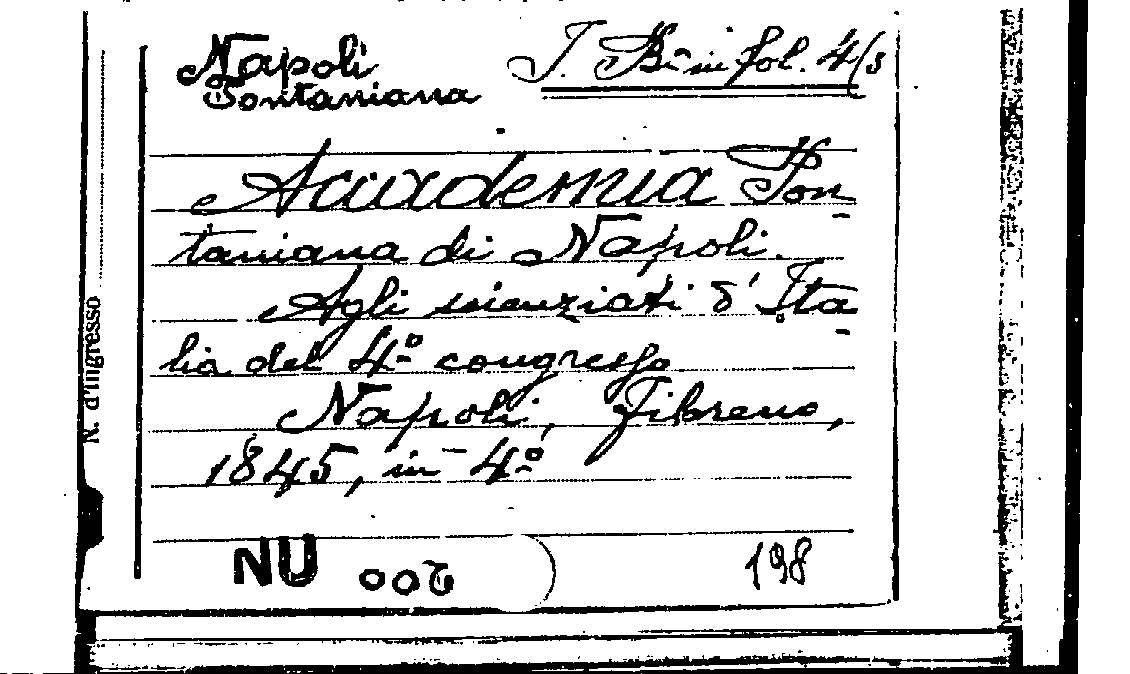 Napoli
Pontaniana
Accademia Pon
taniana di Napoli.
Agli scienziati d'Ita
lia del 4º congresso
Napoli, Fibreno,
1845, in 4º
NU
198
N. d'ingresso